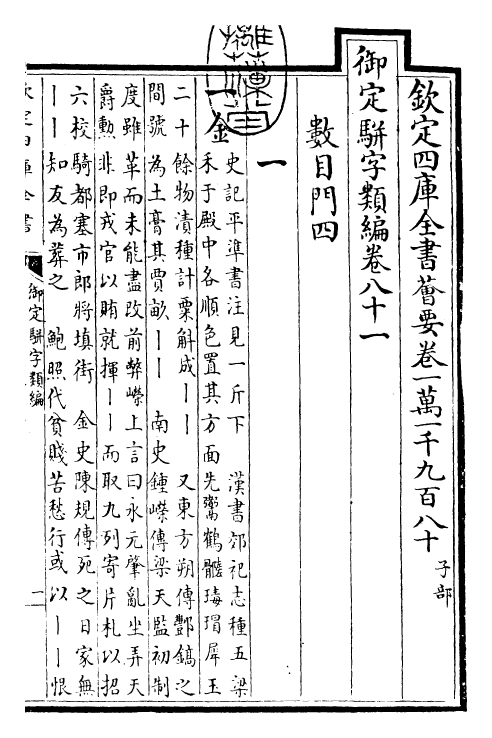 欽定四庫全書薈要卷一萬一千九百八十 子部
御定駢字類編卷八十一
數目門四
一
一金 史記平準書注見一斤下 漢書郊祀志種五粱
禾于殿中各順色置其方面先鬻鶴髓瑇瑁犀玉
二十餘物漬種計粟斛成丨丨 又東方朔傳酆鎬之
間號為土膏其賈畝丨丨 南史鍾嶸傳梁天監初制
度雖革而未能盡改前弊嶸上言曰永元肇亂坐弄天
爵勲非即戎官以賄就揮丨丨而取九列寄片札以招
六校騎都塞市郎將填街 金史陳規傳死之日家無
丨丨知友為葬之 鮑照代貧賤苦愁行或以丨丨恨
欽定四庫全書
御定駢字類編